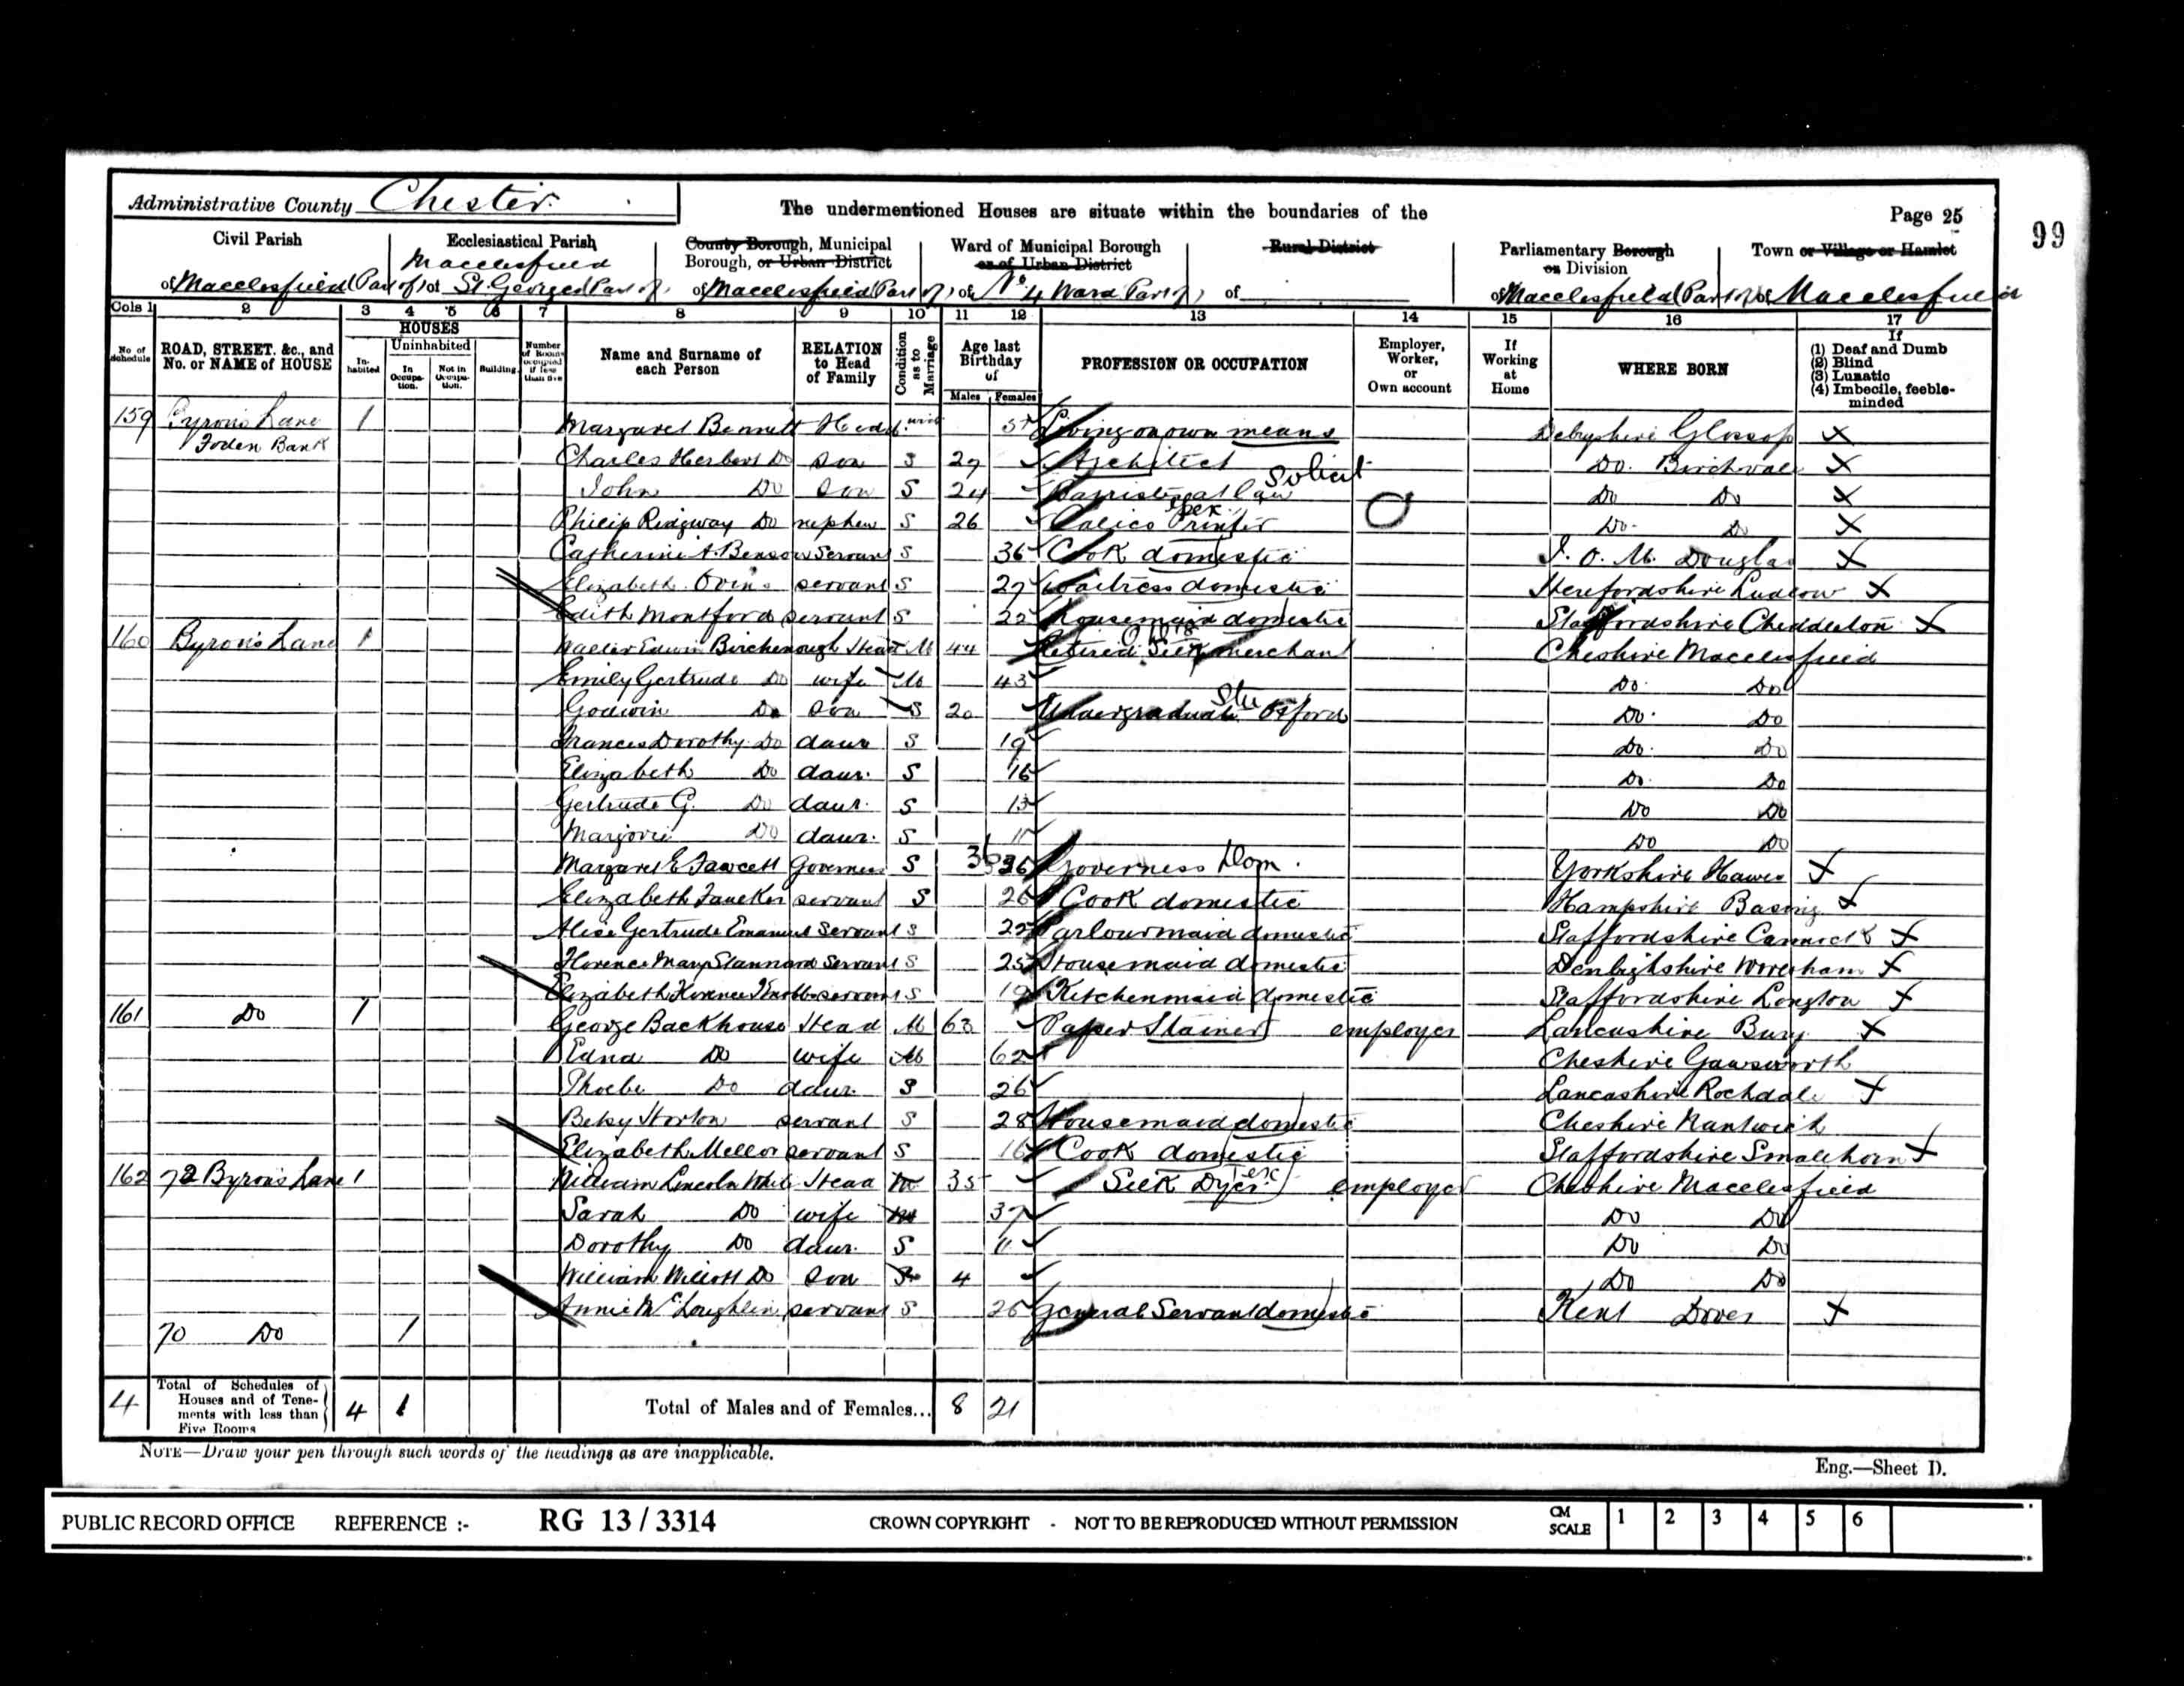 Administrative County Chester
The undermentioned Houses are situate within the boundaries of the
Page 25
99
Civil Parish
of Macclesfield (Part of)
Ecclesiastical Parish
Macclesfield
of St Georges (Part of)
County Borough, Municipal
Borough, or Urban District
of Macclesfield (Part of)
Ward of Municipal Borough
or of Urban District
of No 4 Ward (Part of)
Rural District
of
Parliamentary Borough
or Division
of Macclesfield (Part of)
Town or Village or Hamlet
of Macclesfield
Cols 1 2 3 4 5 6 7 8 9 10 11 12 13 14 15 16 17
No of Schedule
ROAD, STREET. &c., and No. or NAME of HOUSE
HOUSES
In-habited
Uninhabited
In Occupa-tion.
Not in Occupa-tion.
Building.
Number of Rooms occupied if less than five
Name and Surname of each Person
RELATION to Head of Family
Condition as to Marriage
Age last Birthday of
Males Females
PROFESSION OR OCCUPATION
Employer, Worker, or Own account
If Working at Home
WHERE BORN
If
(1) Deaf and Dumb
(2) Blind
(3) Lunatic
(4) Imbecile, feeble-minded
159 Byrons Lane 1 Margaret Bennett Head Living on own means Derbyshire Glossop X
Foden Bank
Charles Herbert Do son S 27 Architect Do. Birchvale X
John Do son S 24 Barrister at law Solicit Do Do X
Philip Ridgway Do nephew S 26 Calico Printer Do. Do X
Catherine A. Benson Servant S 36 Cook domestic I. O. M. Douglas X
Elizabeth servant S 27 Waitress domestic Herefordshire Ludlow X
Edith Montford servant S 22 Housemaid domestic Staffordshire Cheddleton X
160 Byron's Lane 1 Walter Edwin Birchenough Head M 44 Retired Silk Merchant Cheshire Macclesfield
Emily Gertrude Do wife M 43 Do. Do
Godwin Do son S 20 Undergraduate Oxford Stu Do. Do
Frances Dorothy Do daur S 19 Do. Do
Elizabeth Do daur. S 16 Do. Do
Gertrude G. Do daur. S 13 Do Do
Marjorie Do daur. S 11 Do Do
Margaret E Fawcett Governess S 36 Governess Dom. Yorkshire Hawes X
Elizabeth servant S 26 Cook domestic Hampshire Basing X
Alice Gertrude Emanuel Servant S 22 Parlourmaid domestic Staffordshire Cannock X
Florence Mary Stannard Servant S 25 Housemaid domestic Denbighshire Wrexham X
Elizabeth Florence servant S 19 Kitchenmaid domestic Staffordshire Longton X
161 Do 1 George Backhouse Head M 63 Paper Stainer employer Lancashire Bury X
Edna Do wife M 62 Cheshire Gawsworth
Phoebe Do daur. S 26 Lancashire Rochdale X
Betsy Horton servant S 28 Housemaid domestic Cheshire Nantwich
Elizabeth Mellor servant S 16 Cook domestic Staffordshire X
162 72 Byron's Lane 1 William Lincoln Head M 35 Silk Dyer employer Cheshire Macclesfield
Sarah Do wife M 37 Do Do
Dorothy Do daur. S 11 Do Do
William Do son S 4 Do Do
Annie McLoughlin servant S 26 General Servant domestic Kent Dover X
70 Do 1
4 Total of Schedules of Houses and of Tene-ments with less than Five Rooms 4 1 Total of Males and of Females... 8 21
NOTE—Draw your pen through such words of the headings as are inapplicable.
Eng.—Sheet D.
PUBLIC RECORD OFFICE REFERENCE :- RG 13 / 3314 CROWN COPYRIGHT - NOT TO BE REPRODUCED WITHOUT PERMISSION CM SCALE 1 2 3 4 5 6